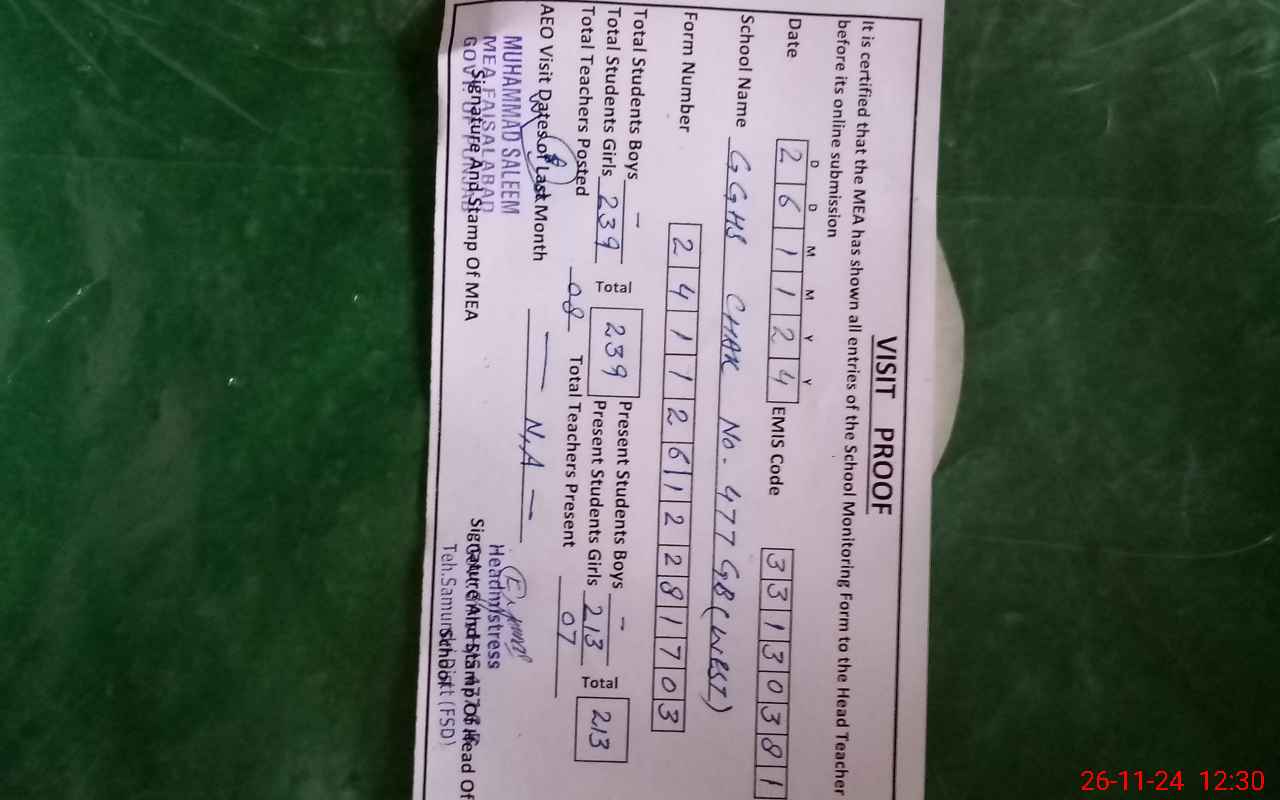 VISIT PROOF
It is certified that the MEA has shown all entries of the School Monitoring Form to the Head Teacher
before its online submission
D D M M Y Y
Date 2 6 1 1 2 4 EMIS Code 3 3 1 3 0 3 8 1
School Name GGHS CHAK No. 477 GB (WEST)
Form Number 2 4 1 1 2 6 1 2 2 8 1 7 0 3
Total Students Boys – Present Students Boys –
Total Students Girls 239 Total 239 Present Students Girls 213 Total 213
Total Teachers Posted 08 Total Teachers Present 07
AEO Visit Dates of Last Month — N.A —
MUHAMMAD SALEEM
MEA FAISALABAD
GOVT. OF PUNJAB
Signature And Stamp Of MEA
Headmistress
Signature And Stamp Of Head Of
School
Teh.Samundri Distt (FSD)
26-11-24 12:30